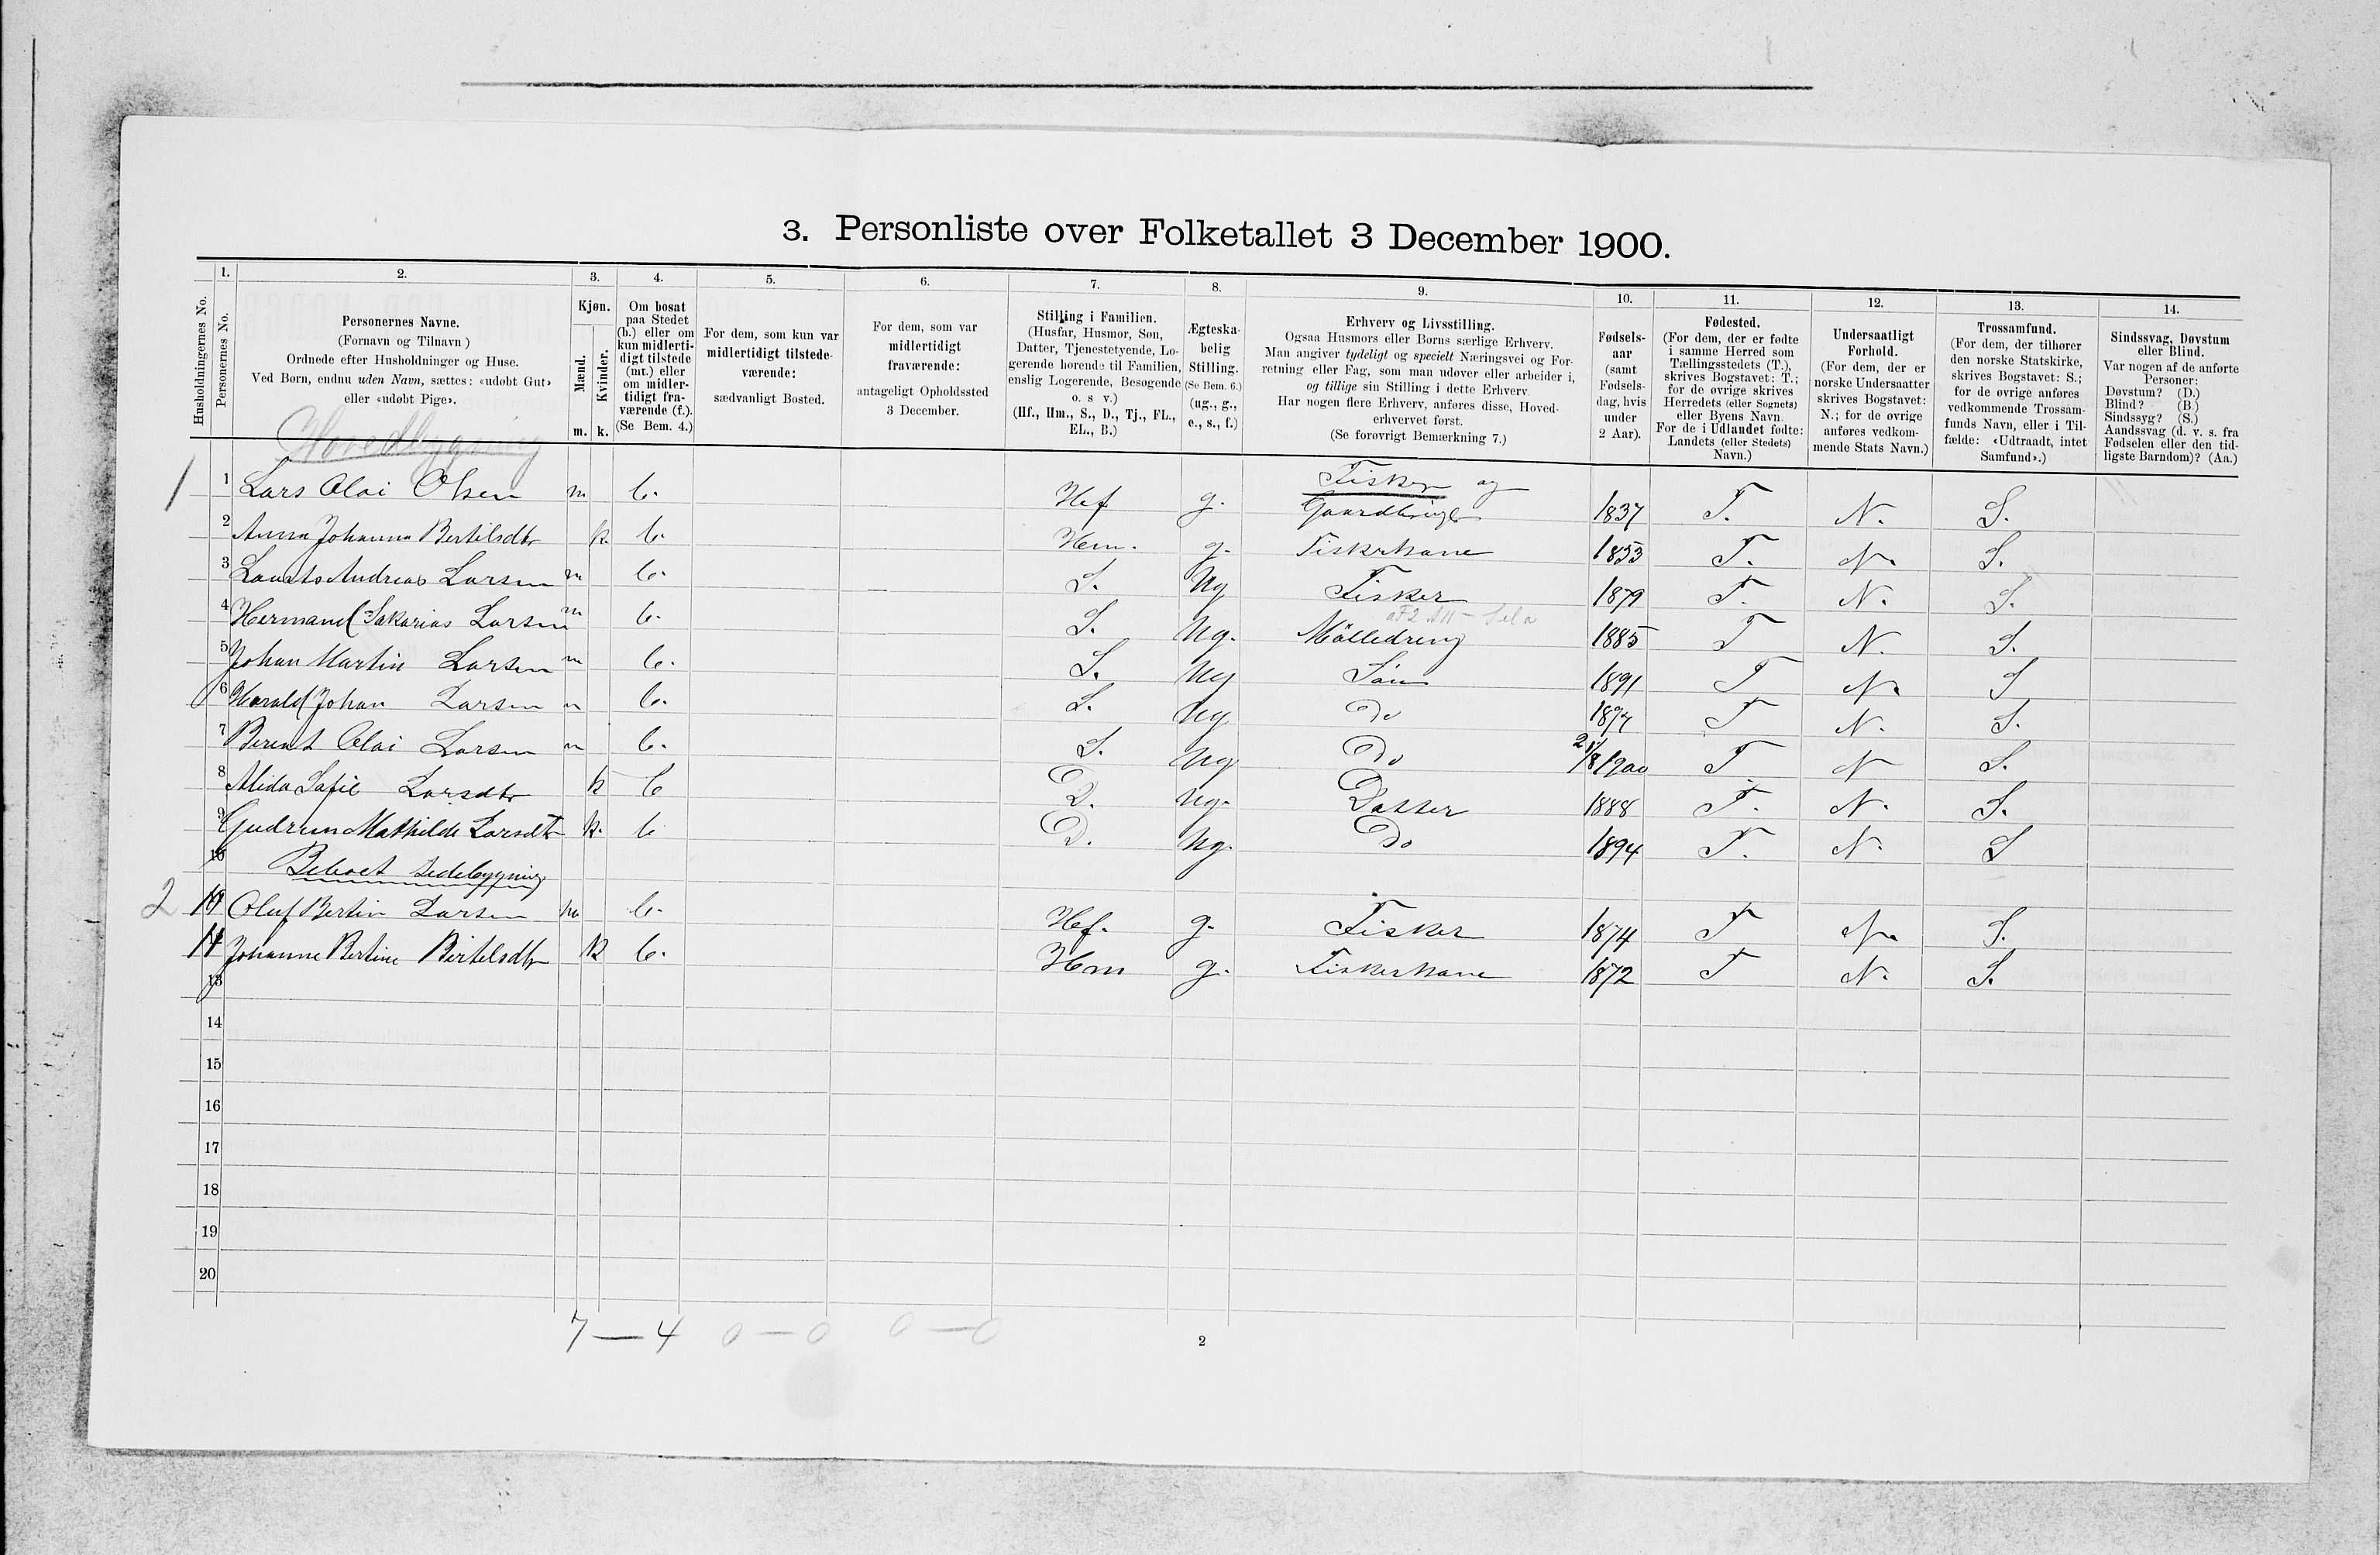 3. Personliste over Folketallet 3 December 1900.
Husholdningernes No.
1. 2. 3. 4. 5. 6. 7. 8. 9. 10. 11. 12. 13. 14.
Personernes No.
Personernes Navne.
(Fornavn og Tilnavn )
Ordnede efter Husholdninger og Huse.
Ved Børn, endnu uden Navn, sættes: «udøbt Gut»
eller «udøbt Pige».
Kjøn.
Mænd.
Kvinder.
m. k.
Om bosat
paa Stedet
(b.) eller om
kun midlerti-
digt tilstede
(mt.) eller
om midler-
tidigt fra-
værende (f.).
(Se Bem. 4.)
For dem, som kun var
midlertidigt tilstede-
værende:
sædvanligt Bosted.
For dem, som var
midlertidigt
fraværende:
antageligt Opholdssted
3 December.
Stilling i Familien.
(Husfar, Husmor, Søn,
Datter, Tjenestetyende, Lo-
gerende hørende til Familien,
enslig Logerende, Besøgende
o. s v.)
(Hf., Hm., S., D., Tj., FL.,
EL., B.)
Ægteska-
belig
Stilling.
(Se Bem. 6.)
(ug., g.,
e., s., f.)
Erhverv og Livsstilling.
Ogsaa Husmors eller Børns særlige Erhverv.
Man angiver tydeligt og specielt Næringsvei og For-
retning eller Fag, som man udøver eller arbeider i,
og tillige sin Stilling i dette Erhverv.
Har nogen flere Erhverv, anføres disse, Hoved-
erhvervet først.
(Se forøvrigt Bemærkning 7.)
Fødsels-
aar
(samt
Fødsels-
dag, hvis
under
2 Aar).
Fødested.
(For dem, der er fødte
i samme Herred som
Tællingsstedets (T.),
skrives Bogstavet: T.;
for de øvrige skrives
Herredets (eller Sognets)
eller Byens Navn.
For de i Udlandet fødte:
Landets (eller Stedets)
Navn.)
Undersaatligt
Forhold.
(For dem, der er
norske Undersaatter
skrives Bogstavet:
N.; for de øvrige
anføres vedkom-
mende Stats Navn.)
Trossamfund.
(For dem, der tilhører
den norske Statskirke,
skrives Bogstavet: S.;
for de øvrige anføres
vedkommende Trossam-
funds Navn, eller i Til-
fælde: «Udtraadt, intet
Samfund».)
Sindssvag, Døvstum
eller Blind.
Var nogen af de anførte
Personer:
Døvstum? (D.)
Blind? (B.)
Sindssyg? (S.)
Aandssvag (d. v. s. fra
Fødselen eller den tid-
ligste Barndom)? (Aa.)
Hovedbygning
1 1 Lars Olai Olsen m b. Hf g. Fisker og Gaardbruger 1837 T. N. S.
2 Anna Johanna Bertilsdtr k. b. Hm. g. Fiskerkone 1853 T. N. S.
3 Andreas Larsen m b. S. Ug Fisker 1879 T. N. S.
4 Sakarias Larsen m b. S. Ug. Mölledreng 1885 T N. S.
5 Johan Martin Larsen m b. S. Ug Sön 1891 T N. S
6 Harald Johan Larsen m b. S. Ug Do T N. S.
7 Berent Olai Larsen m b. S. Ug Do 1900 T N S.
8 Alida Sofie Larsdtr k b D. Ug. Datter 1888 T. N. S.
9 Gudrun Mathilde Larsdtr k. b D. Ug. Do 1894 T. N. S
10 Beboet Sidebygning
2 10 Oluf Bertin Larsen m b. Hf. g. Fisker 1874 T N. S.
11 Johanne Bertine Bertelsdtr k b. Hm g. Fiskerkone 1872 T N. S.
13
14
15
16
17
18
19
20
7 — 4 0 — 0 0 — 0
2